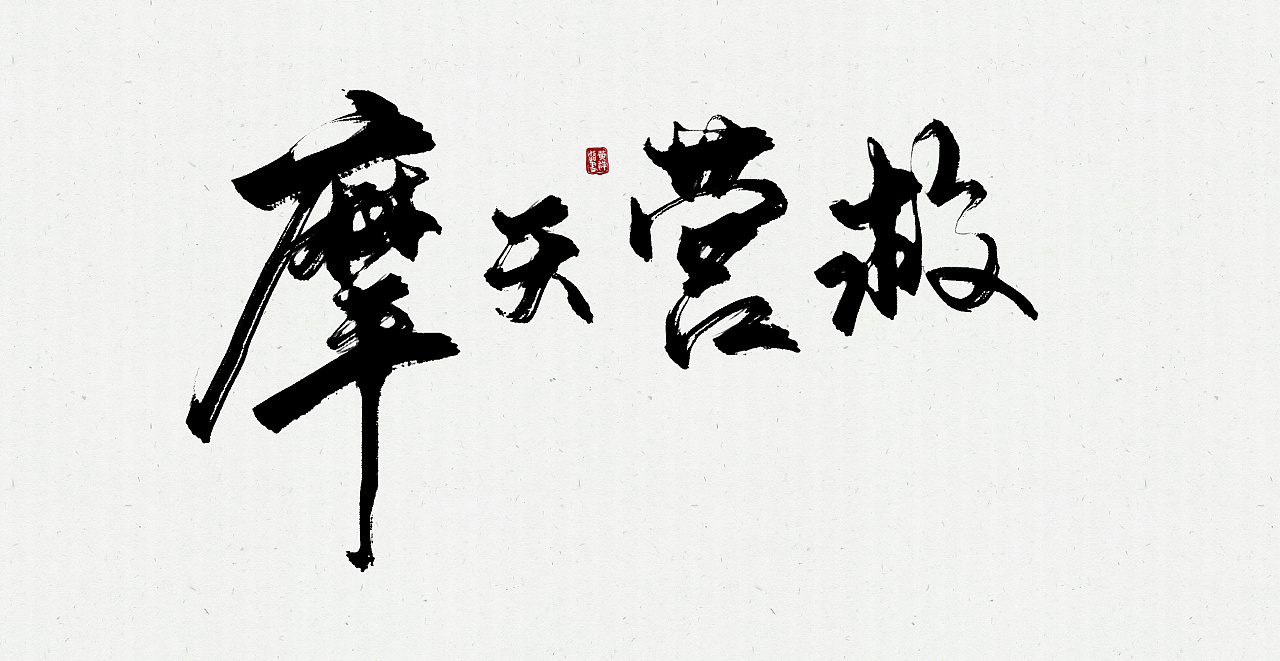 摩天营救